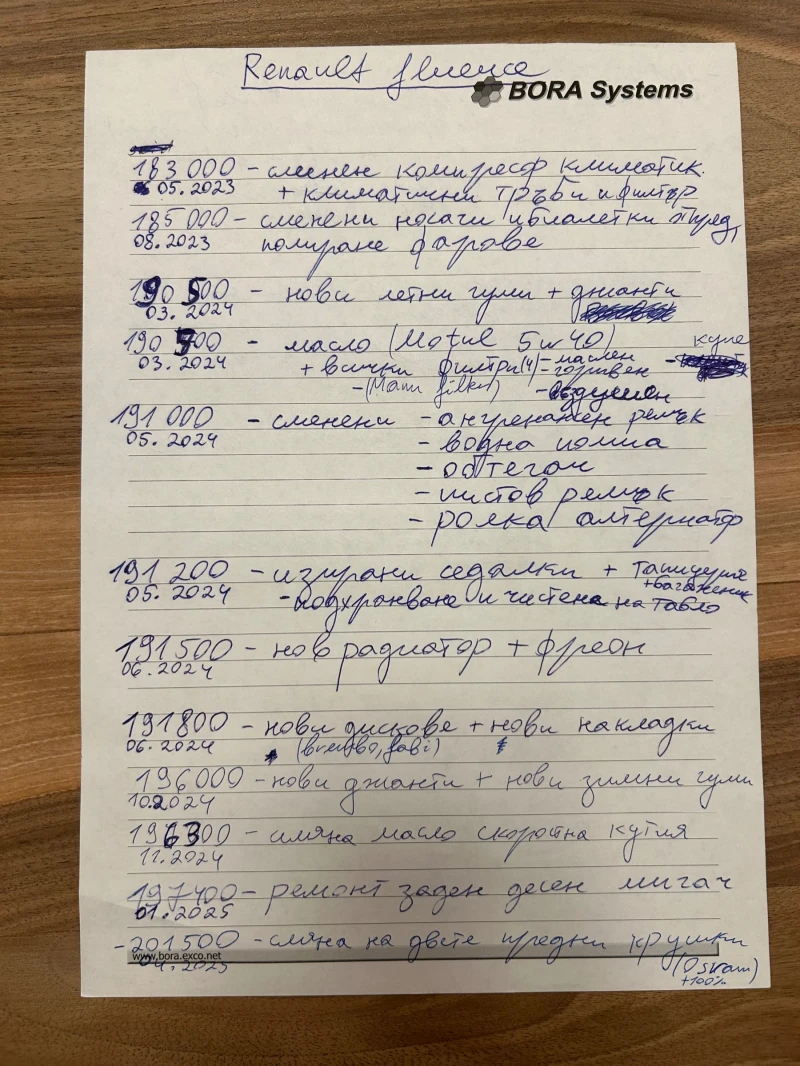 Renault fluence
BORA Systems
183 000 - сменен компресор климатик.
05.2023 + климатични тръби и филтър
185 000 - сменени носачи и биалетки пред,
08.2023 полиране фарове
190 500 - нови летни гуми + джанти
03.2024
190 700 - масло (Motul 5w40)
03.2024 + всички филтри (4) - маслен - купе
- горивен
- (Mann filter) - въздушен
191 000 - сменени - ангренажен ремък
05.2024 - водна помпа
- обтегач
- пистов ремък
- ролка алтернатор
191 200 - изпрани седалки + тапицерия
05.2024 - подхранване и чистене на табло + багажник
191 500 - нов радиатор + фреон
06.2024
191800 - нови дискове + нови накладки
06.2024 (brembo, )
196000 - нови джанти + нови зимни гуми
10.2024
196300 - смяна масло скоростна кутия
11.2024
197400 - ремонт заден десен мигач
01.2025
- 201500 - смяна на двете предни крушки
www.bora.exco.net
04.2025 (Osram)
+100%